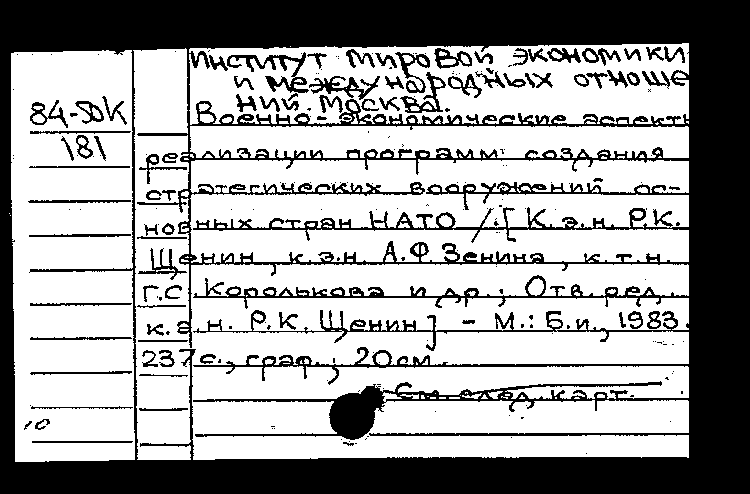 Институт мировой экономики
и международных отноше
ний. Москва.
84-50К
181
Военно-экономические аспекты
реализации программ создания
стратегических вооружений ос-
новных стран НАТО /.[К.э.н. Р.К.
Щенин, к.э.н. А.Ф. Зенина, к.т.н.
Г.С. Королькова и др.; Отв. ред.
к.э.н. Р.К. Щенин] - М.: Б.и., 1983.
237с., граф.; 20см.
См. след. карт.
10